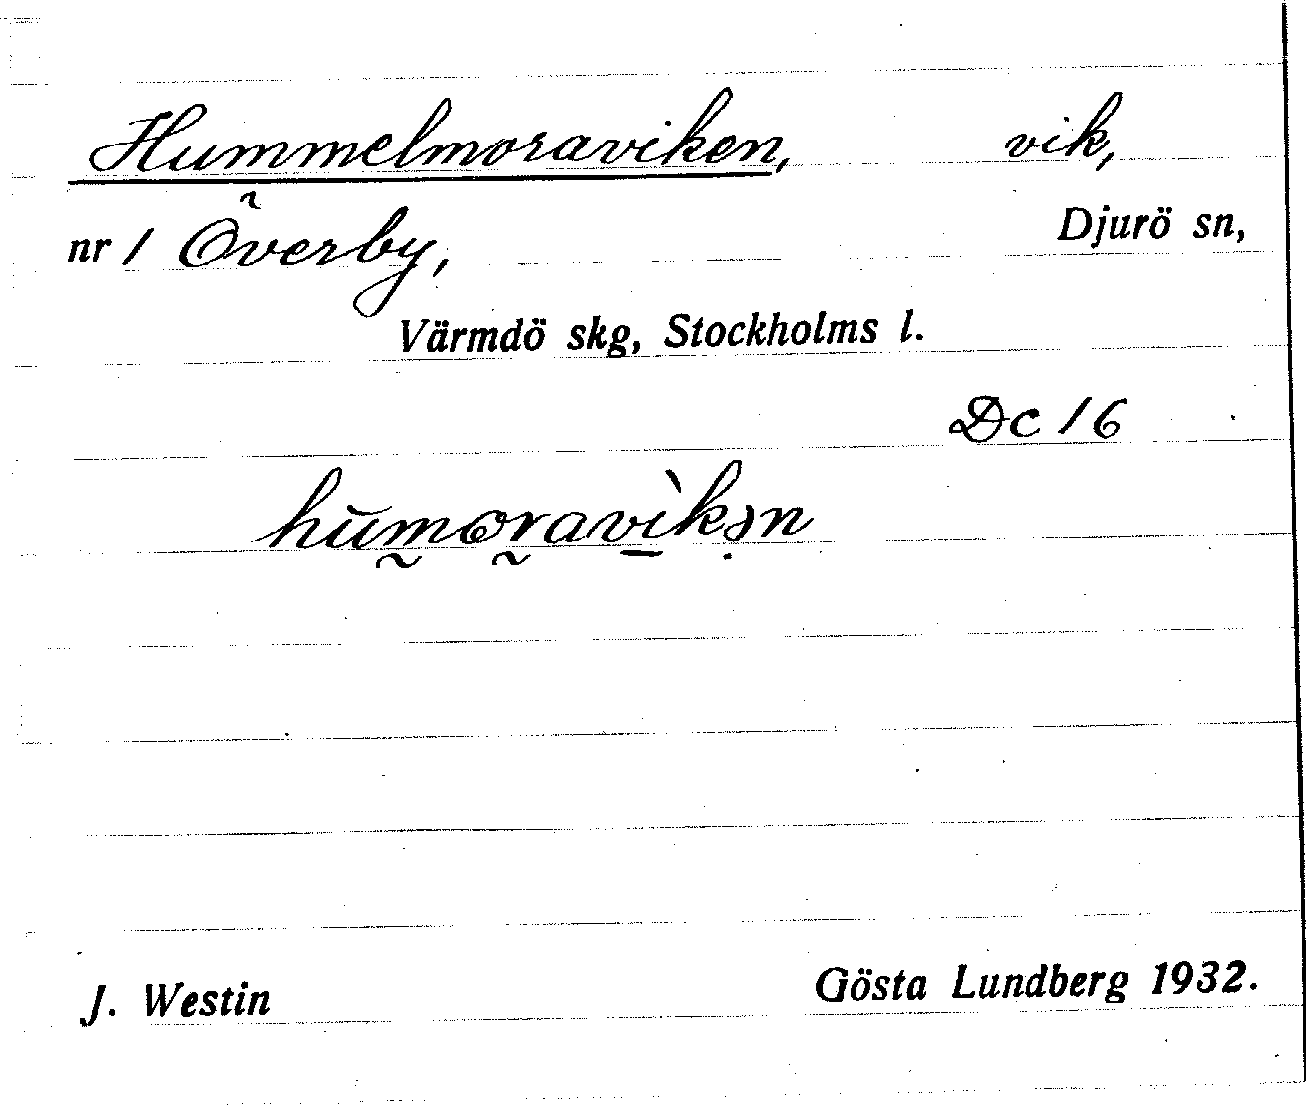 Hummelmoraviken, vik,
nr 1 Överby, Djurö sn,
Värmdö skg, Stockholms l.
Dc 16
J. Westin Gösta Lundberg 1932.